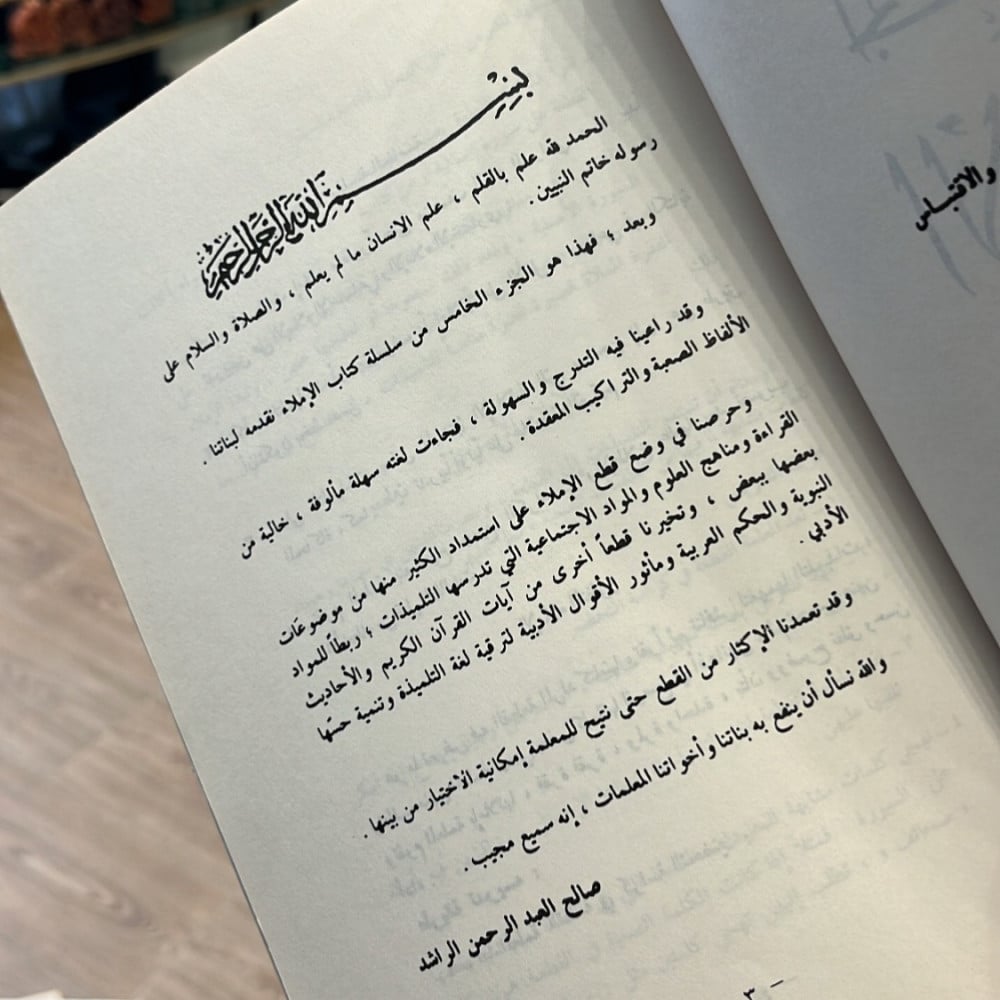 بسم الله الرحمن الرحيم
الحمد لله علم بالقلم ، علم الانسان ما لم يعلم ، والصلاة والسلام على
رسوله خاتم النبيين .
وبعد ؛ فهذا هو الجزء الخامس من سلسلة كتاب الإملاء نقدمه لبناتنا .
وقد راعينا فيه التدرج والسهولة ، فجاءت لغته سهلة مألوفة ، خالية من
الألفاظ الصعبة والتراكيب المعقدة .
وحرصنا في وضع قطع الإملاء على استمداد الكثير منها من موضوعات
القراءة ومناهج العلوم والمواد الاجتماعية التي تدرسها التلميذات ؛ ربطاً للمواد
بعضها ببعض ، وتخيرنا قطعاً أخرى من آيات القرآن الكريم والأحاديث
النبوية والحكم العربية ومأثور الأقوال الأدبية لترقية لغة التلميذة وتنمية حسّها
الأدبي .
وقد تعمدنا الإكثار من القطع حتى نتيح للمعلمة إمكانية الاختيار من بينها .
والله نسأل أن ينفع به بناتنا وأخواتنا المعلمات ، إنه سميع مجيب .
صالح العبد الرحمن الراشد
– ٣
والاقتباس